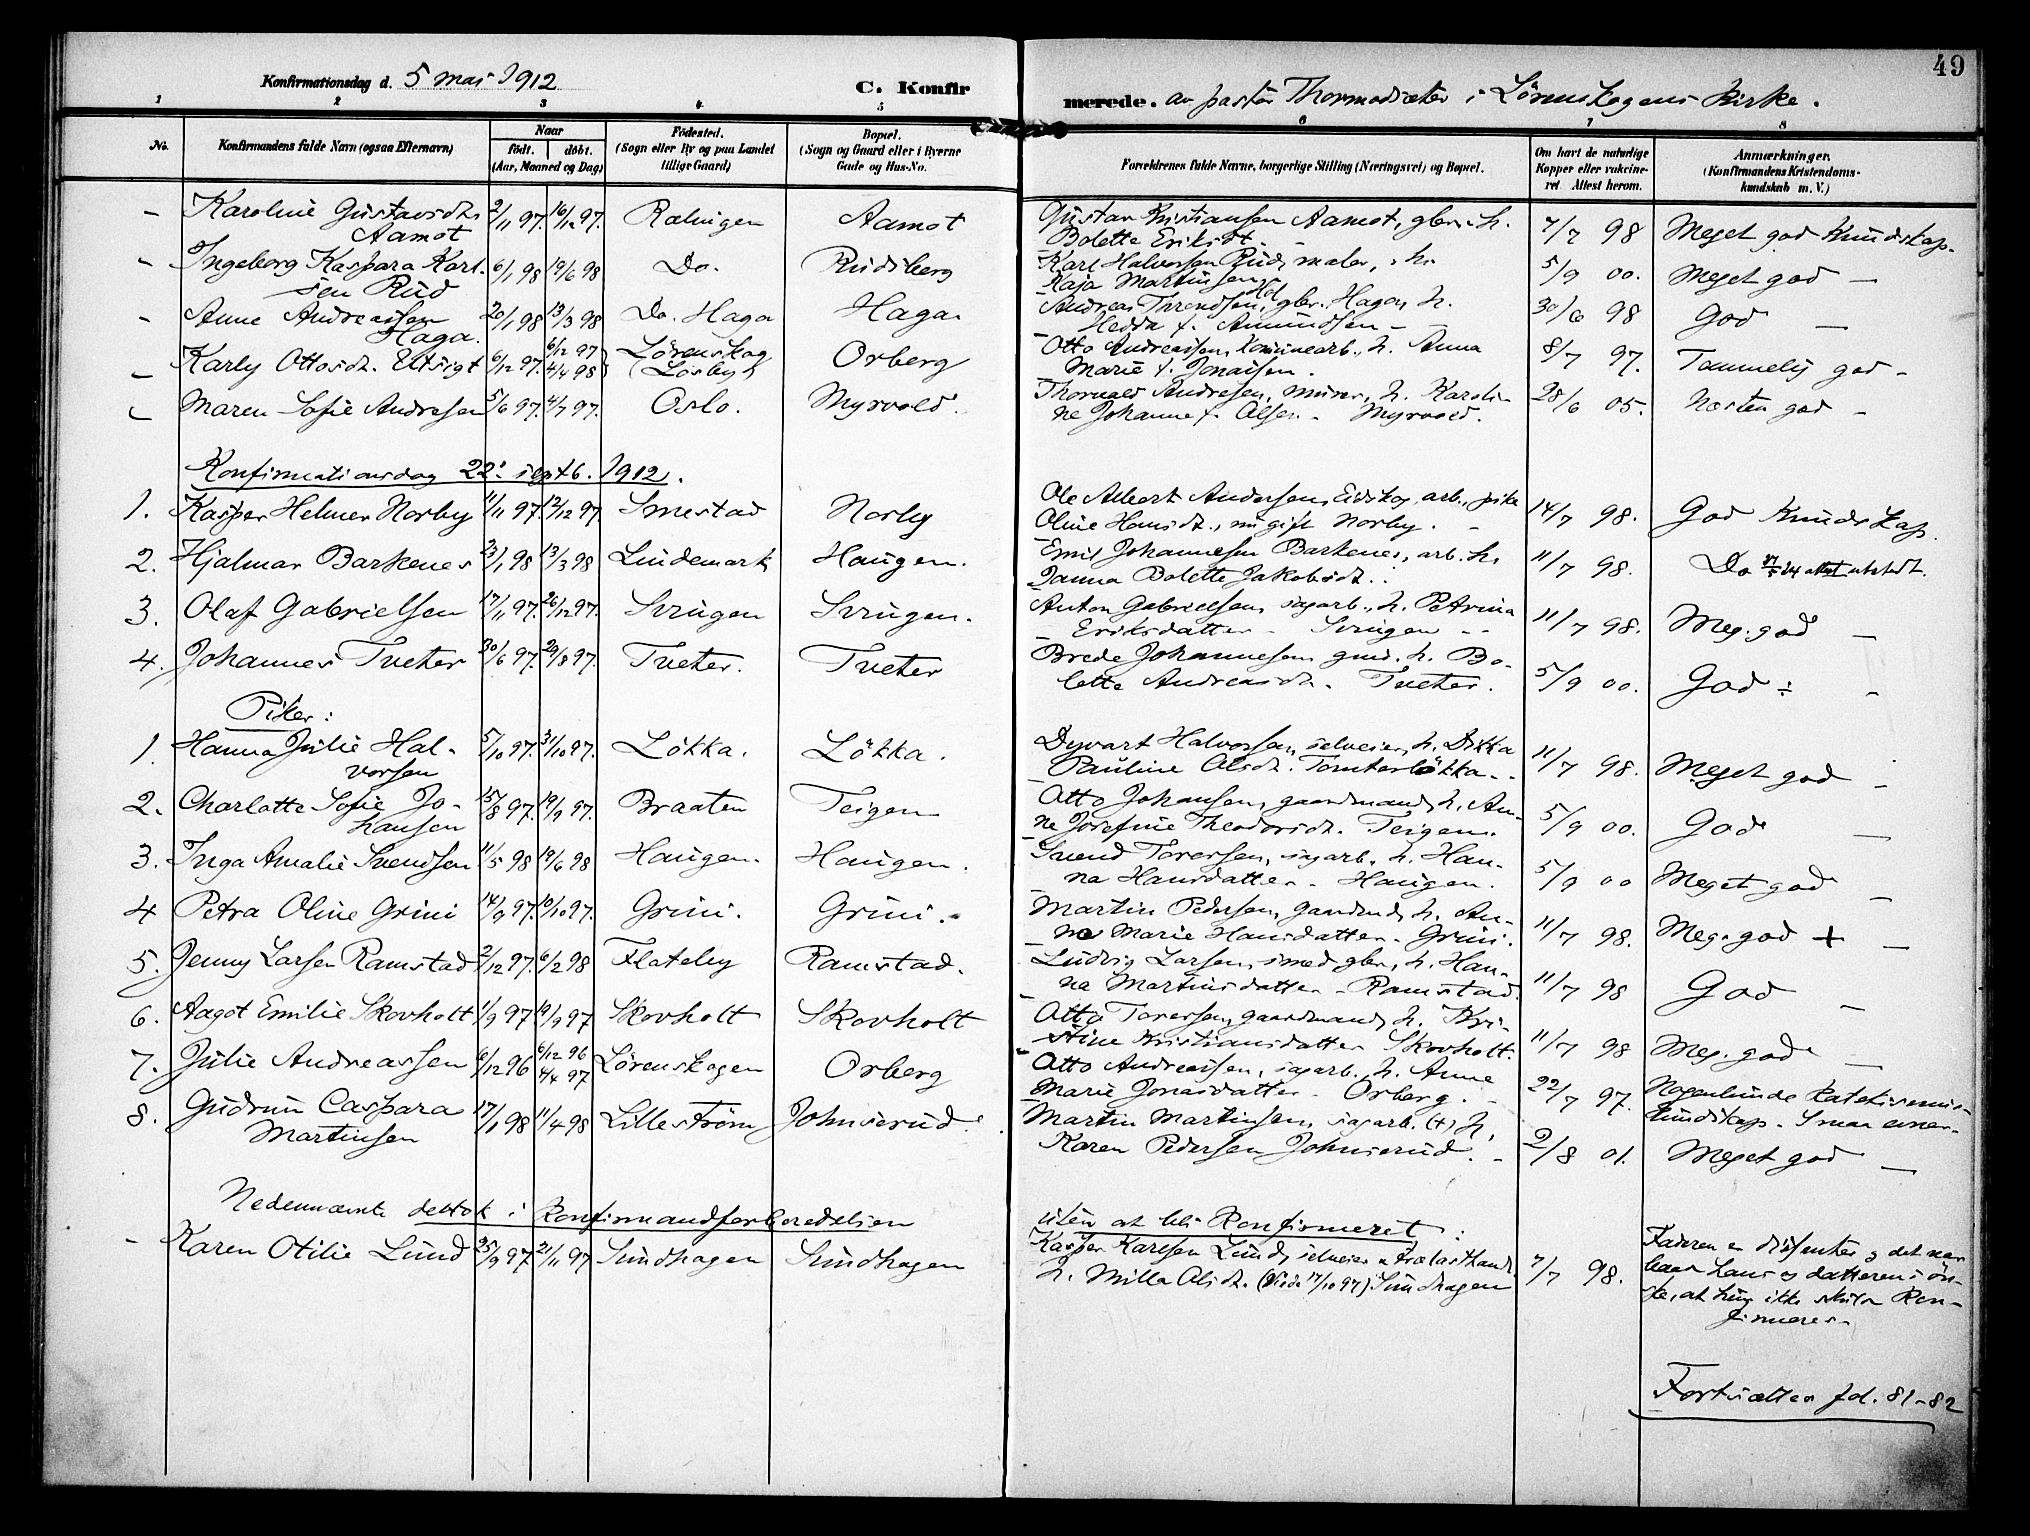 49
Konfirmationsdag d. 5 mai 1912
C. Konfirmerede. av pastor i Lörenskogens Kirke.
1 2 3 4 5 6 7 8
No. Konfirmandens fulde Navn (ogsaa Efternavn) Naar født. døbt. (Aar, Maaned og Dag) Fødested. (Sogn eller By og paa Landet tillige Gaard) Bopæl. (Sogn og Gaard eller i Byerne Gade og Hus-No. Forældrenes fulde Navne, borgerlige Stilling (Næringsvei) og Bopæl. Om havt de naturlige Kopper eller vakcineret Attest herom. Anmærkninger. (Konfirmandens Kristendomskundskab m. V.)
- Karoline Gustavsdtr. Aamot 2/11 97. 16/12 97. Rælingen Aamot Gustav Kristiansen Aamot, gbr. h. Bolette Eriksdt. - 7/7 98 Meget god Kundskap.
- Ingeborg Kaspara Karlsen Rud 6/1 98 19/6 98 Do. Rudsberg Karl Halvorsen Rud, maler, h. Kaja Martinsen 5/9 00. Meget god -
- Anne Andreassen Haga. 20/1 98 13/3 98 Do. Haga Haga. Andreas Throndsen, gbr. Hagen h. Hedda f. Amundsen - 30/6 98 God -
- Karly Ottosdt. Utsigt 6/12 97. 6/12 97 4/4 98 Lörenskog (Losby) Orberg Otto Andreassen, h. Anna Marie f. Jonassen. 8/7 97. Temmelig god -
- Maren Sofie Andresen 5/6 97. 4/7 97. Oslo. Myrvold. Thorvald Andresen, murer, h. Karoline Johanne f. Olsen - Myrvold. 28/6 05. Næsten god -
Konfirmationsdag 22. septb. 1912.
1. Kasper Helmer Norby 11/11 97. 12/12 97. Smestad Norby Ole Albert Andersen, Eidskog, arb., pike Oline Hansdt., nu gift Norby. - 14/7 98. God Kundskap.
2. Hjalmar Barkenes 23/1 98 13/3 98 Lindemark Haugen. Emil Johannesen Barkenes, arb. h. Janna Bolette Jakobsdt. 11/7 98. Do attest utstedt.
3. Olaf Gabrielsen 17/11 97. 26/12 97. Svingen Svingen. Anton Gabrielsen, sagarb., h. Petrina Eriksdatter - Svingen - 11/7 98. Meg. god -
4. Johannes Tveter 30/6 97. 29/8 97. Tveter. Tveter Brede Johannesen, gmd. h. Bolette Andreasdt. - Tveter. 5/9 00. God ÷ -
Piker:
1. Hanna Julie Halvorsen 5/10 97. 31/10 97. Lökka. Lökka. Dyvart Halvorsen, selveier, h. Dikka Pauline Olsdt. Tomterlökka - 11/7 98. Meget god -
2. Charlotte Sofie Johansen 15/8 97. 19/9 97. Braaten Teigen Otto Johansen, gaardmand, h. Anne Josefine Theodorsdt. Teigen. 5/9 00. God -
3. Inga Amalie Svendsen 11/5 98 19/6 98 Haugen. Haugen. Svend Toresen, sagarb. h. Hanna Hansdatter - Haugen. 5/9 00 Meget god -
4 Petra Oline Grini 14/9 97. 10/10 97. Grini. Grini. Martin Pedersen, gaardmd, h. Anne Marie Hansdatter - Grini. 11/7 98. Meg. god + -
5. Jenny Larsen Ramstad 2/12 97. 6/2 98 Flateby Ramstad. Ludvig Larsen, smed gbr, h. Hanna Martinsdatter - Ramstad. 11/7 98 God -
6. Aagot Emilie Skovholt 1/9 97 19/9 97 Skovholt Skovholt Otto Toresen, gaardmand, h. Kristine Kristiansdatter Skovholt. 11/7 98 Meg. god -
7. Julie Andreassen 6/12 96 6/12 96 4/4 97 Lörenskogen Orberg Otto Andreassen, sagarb., h. Anne Marie Jonasdatter - Orberg. - 22/7 97. Nogenlunde kundskap -
8. Gudrun Caspara Martinsen 17/1 98 11/4 98 Lilleström Johnsrud. Martin Martinsen, sagarb. (+) h. Karen Pedersen Johnsrud. - 2/8 01. Meget god -
Nedennævnte deltok i konfirmandforberedelsen uten at bli Konfirmeret:
- Karen Otilie Lund 25/9 97 21/11 97 Sundhagen Sundhagen Kasper Karlsen Lund, selveier & h. Milla Olsdt. (Viede 17/10 97) Sundhagen 7/7 98. Faderen er dissenter og det var baade hans og datterens önske, at hun ikke skulde Konfirmeres -
Fortsættes fol. 81-82